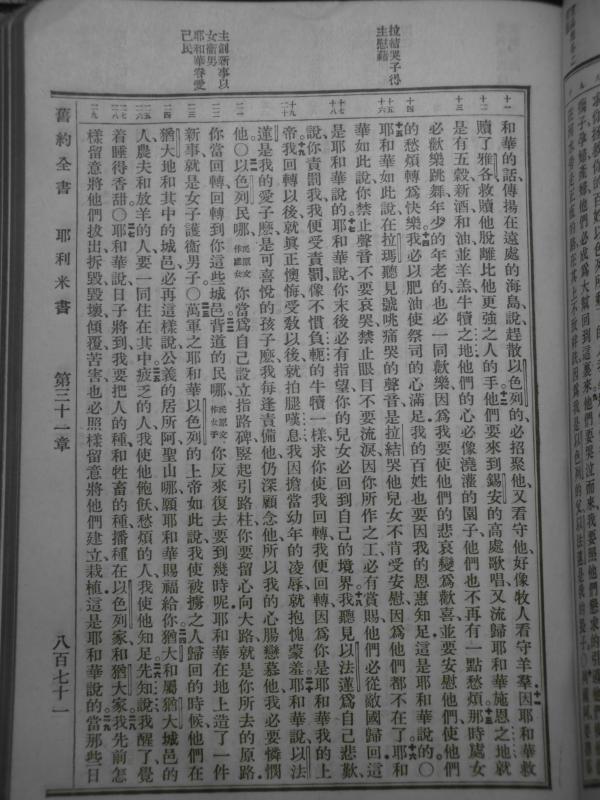 拉結哭子得
主慰藉
主創新事以
女衞男
耶和華眷愛
己民
和華的話傳揚在遠處的海島說趕散以色列的必招聚他又看守他好像牧人看守羊羣因耶和華救
贖了雅各救贖他脫離比他更強之人的手他們要來到錫安的高處歌唱又流歸耶和華施恩之地就
是有五穀新酒和油並羊羔牛犢之地他們的心必像澆灌的園子他們也不再有一點愁煩那時處女
必歡樂跳舞年少的年老的也必一同歡樂因爲我要使他們的悲哀變爲歡喜並要安慰他們使他們
的愁煩轉爲快樂我必以肥油使祭司的心滿足我的百姓也要因我的恩惠知足這是耶和華說的〇
耶和華如此說在拉瑪聽見號咷痛哭的聲音是拉結哭他兒女不肯受安慰因爲他們都不在了耶和
華如此說你禁止聲音不要哀哭禁止眼目不要流淚因你所作之工必有賞賜他們必從敵國歸回這
是耶和華說的耶和華說你末後必有指望你的兒女必回到自己的境界我聽見以法蓮爲自己悲歎
說你責罰我我便受責罰像不慣負軛的牛犢一樣求你使我回轉我便回轉因爲你是耶和華我的上
帝我回轉以後就眞正懊悔受敎以後就拍腿嘆息我因擔當幼年的凌辱就抱愧蒙羞耶和華說以法
蓮是我的愛子麽是可喜悅的孩子麽我每逢責備他仍深顧念他所以我的心腸戀慕他我必要憐憫
他〇以色列民哪民原文作處女你當爲自己設立指路碑豎起引路柱你要留心向大路就是你所去的原路
你當回轉回轉到你這些城邑背道的民哪民原文作女子你反來復去要到幾時呢耶和華在地上造了一件
新事就是女子護衞男子〇萬軍之耶和華以色列的上帝如此說我使被擄之人歸回的時候他們在
猶大地和其中的城邑必再這樣說公義的居所阿聖山哪願耶和華賜福給你猶大和屬猶大城邑的
人農夫和放羊的人要一同住在其中疲乏的人我使他飽飫愁煩的人我使他知足先知說我醒了覺
着睡得香甜〇耶和華說日子將到我要把人的種和牲畜的種播種在以色列家和猶大家我先前怎
樣留意將他們拔出拆毀毀壞傾覆苦害也必照樣留意將他們建立栽植這是耶和華說的當那些日
舊約全書 耶利米書 第三十一章 八百七十一